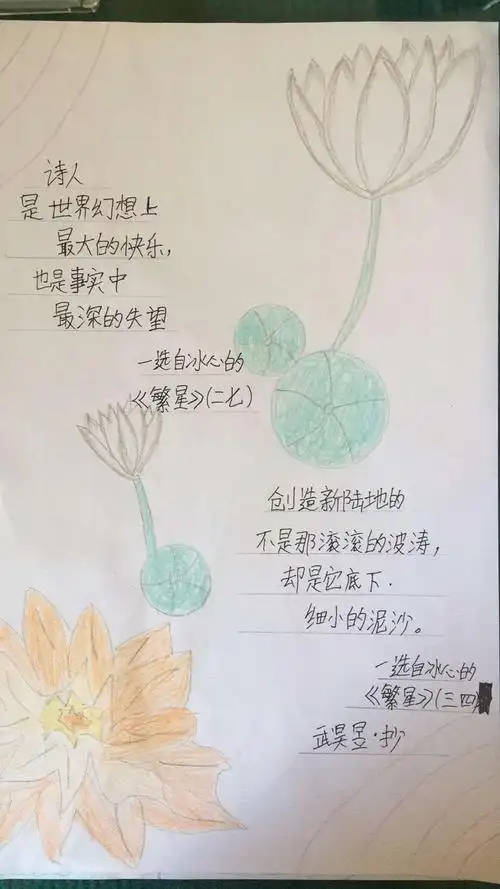 诗人
是世界幻想上
最大的快乐，
也是事实中
最深的失望
—选自冰心的
《繁星》（二七）
创造新陆地的
不是那滚滚的波涛，
却是它底下.
细小的泥沙。
—选自冰心的
《繁星》（三四
武昊昱·抄